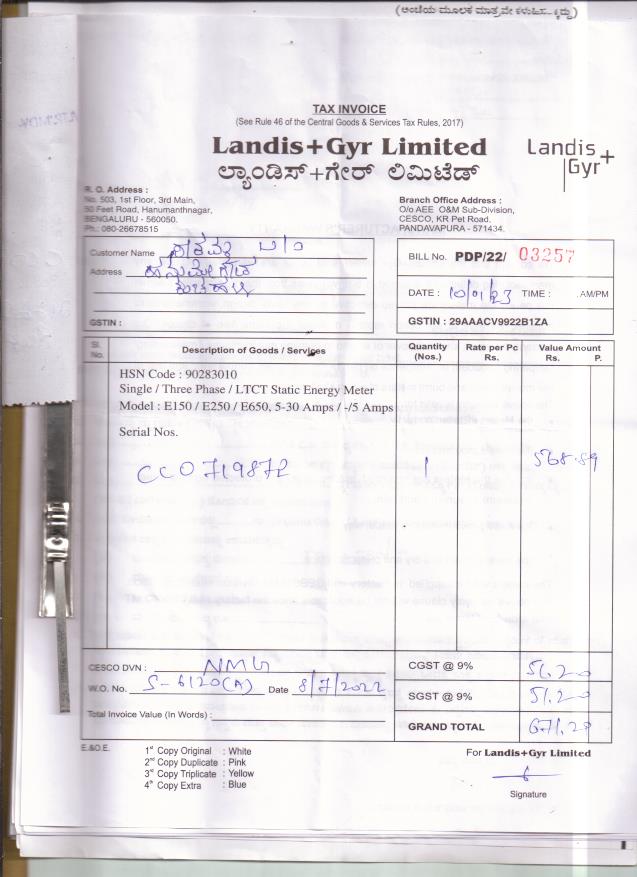 (ಅಂಚೆಯ ಮೂಲಕ ಮಾತ್ರವೇ ಕಳುಹಿಸ
TAX INVOICE
(See Rule 46 of the Central Goods & Services Tax Rules, 2017)
Landis+Gyr Limited
ಲ್ಯಾಂಡಿಸ್+ಗೇರ್ ಲಿಮಿಟೆಡ್
Landis+
Gyr
R. O. Address :
No. 503, 1st Floor, 3rd Main,
50 Feet Road, Hanumanthnagar,
BENGALURU - 560050.
Ph.: 080-26678515
Branch Office Address :
O/o AEE O&M Sub-Division,
CESCO, KR Pet Road.
PANDAVAPURA - 571434.
Customer Name
Address ಹನುಮೇಗೌಡ
GSTIN :
BILL No. PDP/22/ 03257
DATE : 10/01/23 TIME : AM/PM
GSTIN : 29AAACV9922B1ZA
Sl. No. Description of Goods / Services Quantity (Nos.) Rate per Pc Rs. Value Amount Rs. P.
HSN Code : 90283010
Single / Three Phase / LTCT Static Energy Meter
Model : E150 / E250 / E650, 5-30 Amps / -/5 Amps
Serial Nos.
CC0719872 1 568.89
CESCO DVN : NMG
W.O. No. S-6120(A) Date 8/7/2022
Total Invoice Value (In Words) :
CGST @ 9% 51.20
SGST @ 9% 51.20
GRAND TOTAL 671.29
E.&O.E.
1st Copy Original : White
2nd Copy Duplicate : Pink
3rd Copy Triplicate : Yellow
4th Copy Extra : Blue
For Landis+Gyr Limited
Signature